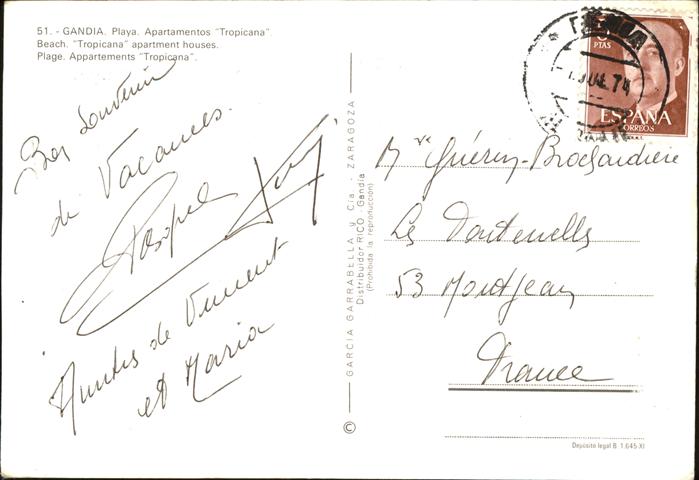 51. - GANDIA. Playa. Apartamentos "Tropicana".
Beach. "Tropicana" apartment houses.
Plage. Appartements "Tropicana".
Bon Souvenir
de Vacances.
Amitiés de Vincent
et Maria
GARCIA GARRABELLA y Cía. - ZARAGOZA
Distribuidor RICO - Gandia
(Prohibida la reproducción)
©
PTAS
ESPAÑA
CORREOS
JUL 74
Mme Guérin-Brochardière
Les
53 Montjean
France
Depósito legal B. 1.645-XI